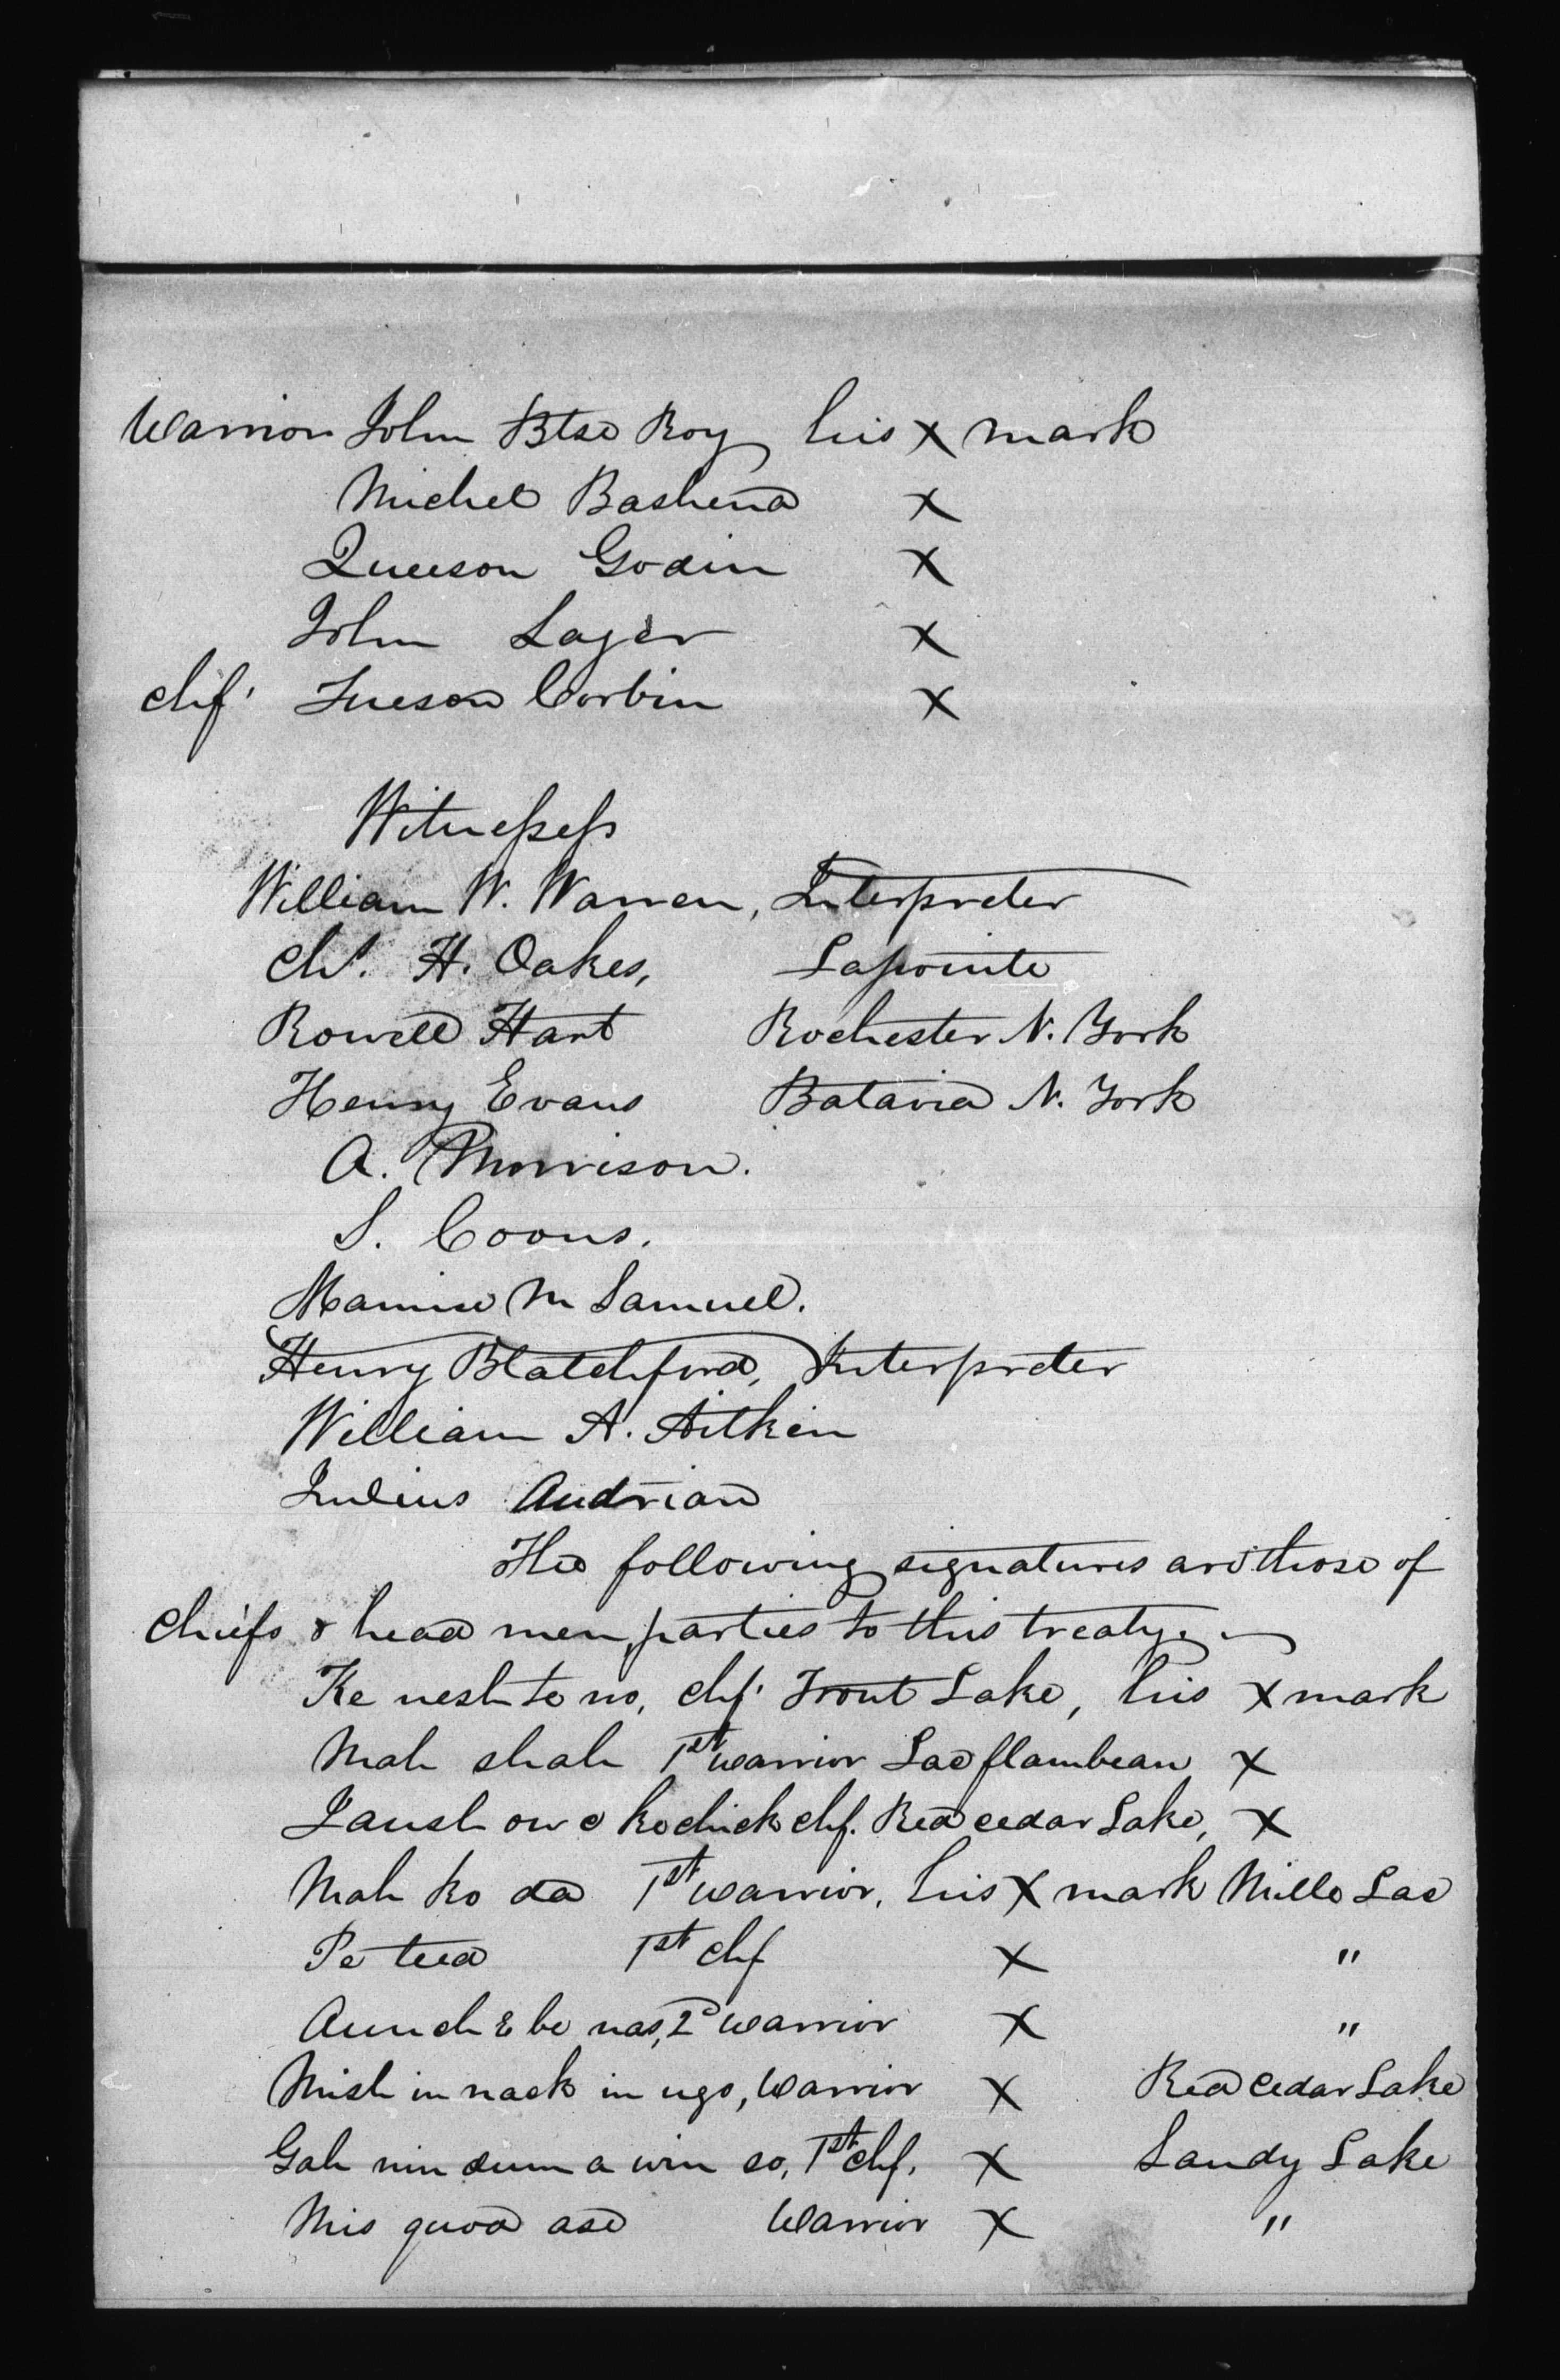 Warrior John Btse Roy his X mark
Michel Bashena X
Queeson Godin X
John Lager X
chf. Fueson Corbin X
Witnesses
William W. Warren, Interpreter
Chs. H. Oakes, Lapointe
Rowell Hart Rochester N. York
Henry Evans Batavia N. York
A. Morrison.
S. Coons.
Mamise M Samuel.
Henry Blatchford, Interpreter
William A. Aitkin
Julius Audrian
The following signatures are those of
chiefs & head men, parties to this treaty.
Ke nesh te no, chf. Trout Lake, his X mark
Mah shah 1st warrior Lac flambeau X
Iaush ow e ke chick chf. Red cedar Lake, X
Mah ko da 1st warrior, his X mark Mille Lac
Pe tud 1st chf X "
Aunch e be nas, 2d warrior X "
Mish in nack in ugo, Warrior X Red cedar Lake
Gah nin dum a win so, 1st chf. X Sandy Lake
Mis quod ase Warrior X "